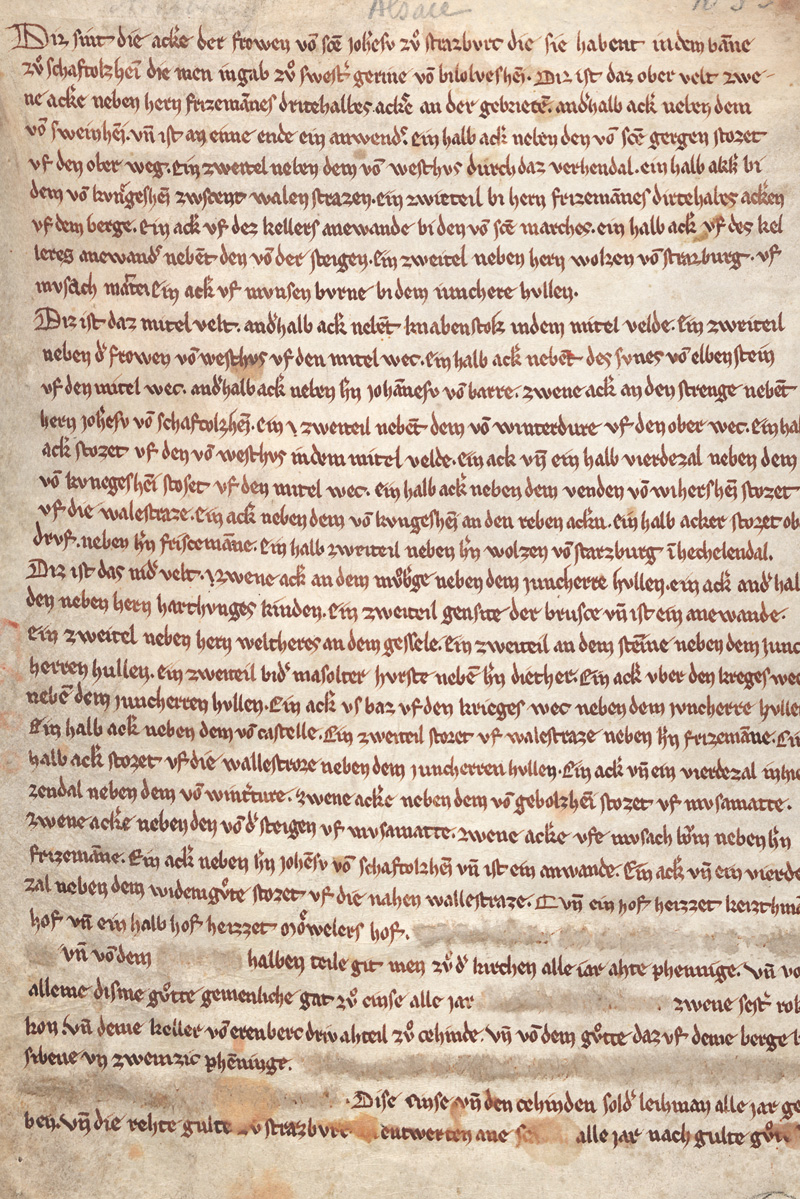 Alsace
Diz sint die acke der frowen vō scē johesv zv̊ strazburc die sie habent indem bāne
zv̊ schaftolzhei die men ingab zv̊ swest' gerine vō bilolveshēi. Diz ist daz ober velt zwe-
ne acke neben hern frizemānes dritehalbes acke an der gebreite. andhalb ack neben dem
vō sweinhēi. vn̄ ist an eime ende ein anwend'. Ein halb ack neben den vō scē gergen stozet
vf den ober weg. Ein zweitel neben dem vō westhvs durch daz verhendal. ein halb akk bi
dem vō kvngeshēi zwscent walen strazen. ein zwirteil bi hern frizemānes dirtehalbes acken
vf dem berge. Ein ack vf dez kellers anewande bi den vō scē marches. ein halb ack vf des kel
leres anewand' nebēt den vō der steigen. Ein zweitel neben hern wolzen vō strazburg. vf
mvsach Ein ack vf mvnsen bvrne bi dem iunchere hvllen.
Diz ist daz mitel velt. andhalb ack nebēt knabenstolz indem mitel velde. Ein zweiteil
neben d' frowen vō westhvs vf den mitel wec. Ein halb ack nebēt des svnes vō elbenstein
vf den mitel wec. andhalb ack neben hn johānesv vō barre. zwene ack an den strenge nebēt
hern johesv vō schaftolzhēi. Ein zweiteil nebēt dem vō winterdure vf den ober wec. Ein hal
ack stozet vf den vō westhvs indem mitel velde. ein ack vn̄ ein halb vierdezal neben dem
vō kvnegeshēi stoset vf den mitel wec. ein halb ack neben dem venden vō wihershēi stozet
vf die walestraze. Ein ack neben dem vō kvngeshēi an den reben ackn. ein halb acker stozet ob
drvf. neben hn friscemāne. Ein halb zweiteil neben hn wolzen vō starzburg ī hechelendal.
Diz ist das nid' velt. zwene ack an dem neben dem juncherre hvllen. ein ack and' hal
den neben hern hartvnges kinden. Ein zweiteil gensite der brusce vn̄ ist ein anewande.
Ein zweitel neben hern weltheres an dem gessele. Ein zweiteil an dem steīne neben dem junc
herren hullen. ein zweiteil bi d' masolter hvrste nebē hn diether. Ein ack vber den kreges wec
nebē dem juncherren hvllen. Ein ack vs baz vf den krieges wec neben dem jvncherre hvllen
Ein halb ack neben dem vō castelle. Ein zweiteil stozet vf walestraze neben hn frizemāne. Ein
halb ack stozet vf die wallestroze neben dem juncherren hvllen. Ein ack vn̄ ein vierdezal
zendal neben dem vō winture. zwene acke neben dem vō gebolzhēi stozet vf mvsamatte.
zwene acke neben den vō d' steigen vf mvsamatte. zwene acke vfe mvsach neben hn
frizemāne. Ein ack neben hn johēsv vō schaftolzhēi vn̄ ist ein anwande. Ein ack vn̄ ein vierde
zal neben dem widemgv̊te stozet vf die nahen wallestraze. vn̄ ein hof heizzet
hof vn̄ ein halb hof heizzet mo̊welers hof.
vn̄ vō dem halben teile git men zv̊ d' kirchen alle iar ahte phennige. vn̄ vo
alleme disme gv̊tte gemenliche gat zv̊ cinse alle jar zwene sest' rok
kon vn̄ deme keller vō erenberc driv ahteil zv̊ cehinde. vn̄ vō dem gv̊tte daz vf deme berge
sibene vn̄ zweinzic phēninge.
Dise cinse vn̄ den cehinden sold' leihman alle jar ge
ben. vn̄ die rehte gulte strazburc entwerten ane alle jar nach gulte